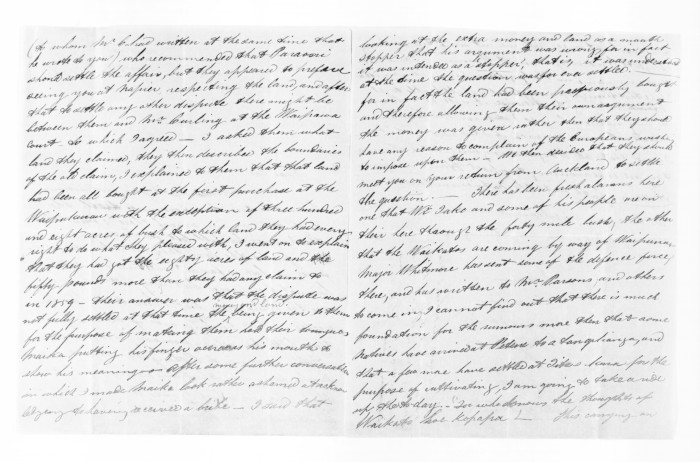 (to whom Mr C. had written at the same time that
he wrote to you) who recommended that Paraone
should settle the affair, but they appeared to prefer
seeing you at Napier, respecting the land, and after
that to settle any other dispute there might be
between them and Mr Curling at the Waipawa
Court. to which I agreed — I asked them what
land they claimed, they then described the boundaries
of the old claim, I explained to them that that land
had been all bought at the first purchase at the
Waipukurau with the exception of three hundred
and eight acres of bush to which land they had every
right to do what they pleased with, I went on to explain
that they had got the eighty acres of land and the
fifty pounds more than they had any claim to
in 1859 — their answer was that the dispute was
not fully settled at that time the being given to them
for the purpose of making them hold their tongues
Maika putting his finger across his mouth to
show his meaning — After some further conversation
in which I made Maika look rather ashamed at
to having received a bribe — I said that
looking at the extra money and land as a mouth
stopper that his argument was wrong, for in fact
it was intended as a stopper, that is, it was understood
at the time the question was for ever settled —
for in fact the land had been previously bought
and therefore allowing them their own argument
the money was given rather then that they should
have any reason to complain of the Europeans, wish
to impose upon them — We then decided that they should
meet you on your return from Auckland to settle
the question. — There has been fresh alarms here
one that Wi Tako and some of his people are on
their here through the forty mile bush, the other
that the Waikatos are coming by way of Waipunga
Major Whitmore has sent some of the defence force,
there, and has written to Mr Parsons and others
to come in, I cannot find out that there is much
foundation for the rumours more then that some
Natives have arrived at to a tangihanga, and
that a few more have settled at for the
purpose of cultivating, I am going to take a ride
up there to day — for who knows the thoughts of
Waikato — This carrying on